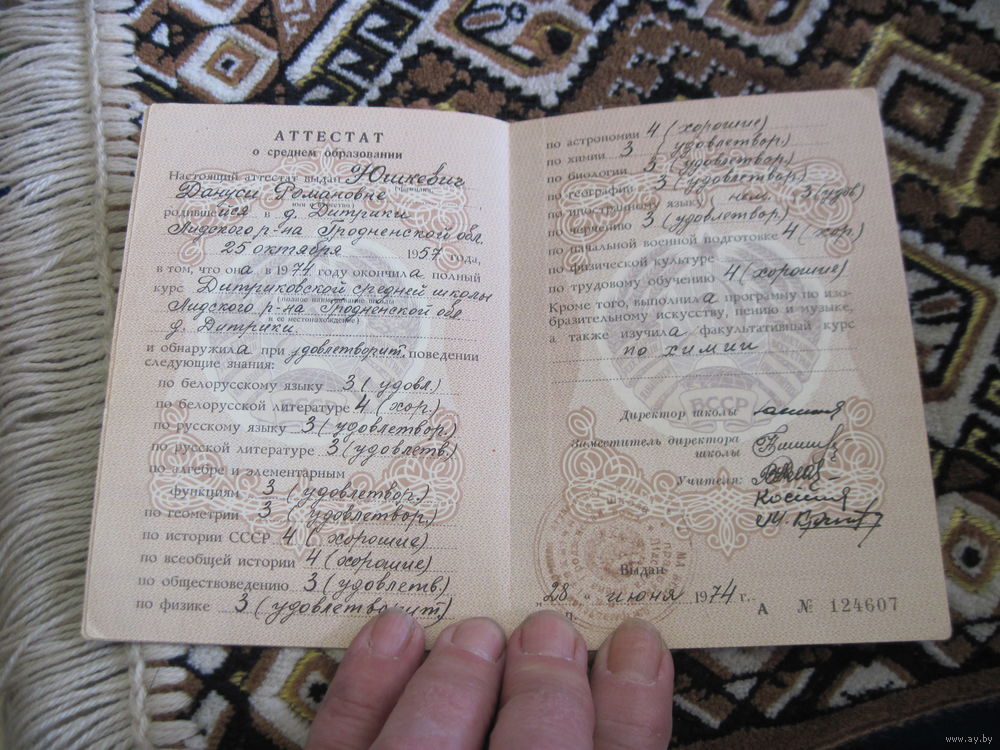 АТТЕСТАТ
о среднем образовании
Настоящий аттестат выдан Юшкевич
Дануси Романовне
родившейся в д. Дитрики
Лидского р-на Гродненской обл.
25 октября 1957 года,
в том, что она в 1974 году окончила полный
курс Дитриковской средней школы
(полное наименование школы
Лидского р-на Гродненской обл
и ее местонахождение)
д. Дитрики
и обнаружила при удовлетворит. поведении
следующие знания:
по белорусскому языку 3 (удовл.)
по белорусской литературе 4 (хор.)
по русскому языку 3 (удовлетвор.)
по русской литературе 3 (удовлетв.)
по алгебре и элементарным
функциям 3 (удовлетвор.)
по геометрии 3 (удовлетвор)
по истории СССР 4 (хорошие)
по всеобщей истории 4 (хорошие)
по обществоведению 3 (удовлетв.)
по физике 3 (удовлетворит)
по астрономии 4 (хорошие)
по химии 3 (удовлетвор.)
по биологии 3 (удовлетвор.)
по географии 3 (удовлетвор.)
по иностранному языку (нем. 3 (удов)
по черчению 3 (удовлетвор.)
по начальной военной подготовке 4 (хор)
по физической культуре
по трудовому обучению 4 (хорошие)
Кроме того, выполнила программу по изо-
бразительному искусству, пению и музыке,
а также изучила факультативный курс
по химии
БССР
БССР
Директор школы
Заместитель директора
школы
Учителя:
Выдан
"28" июня 1974 г.
А № 124607
www.ay.by